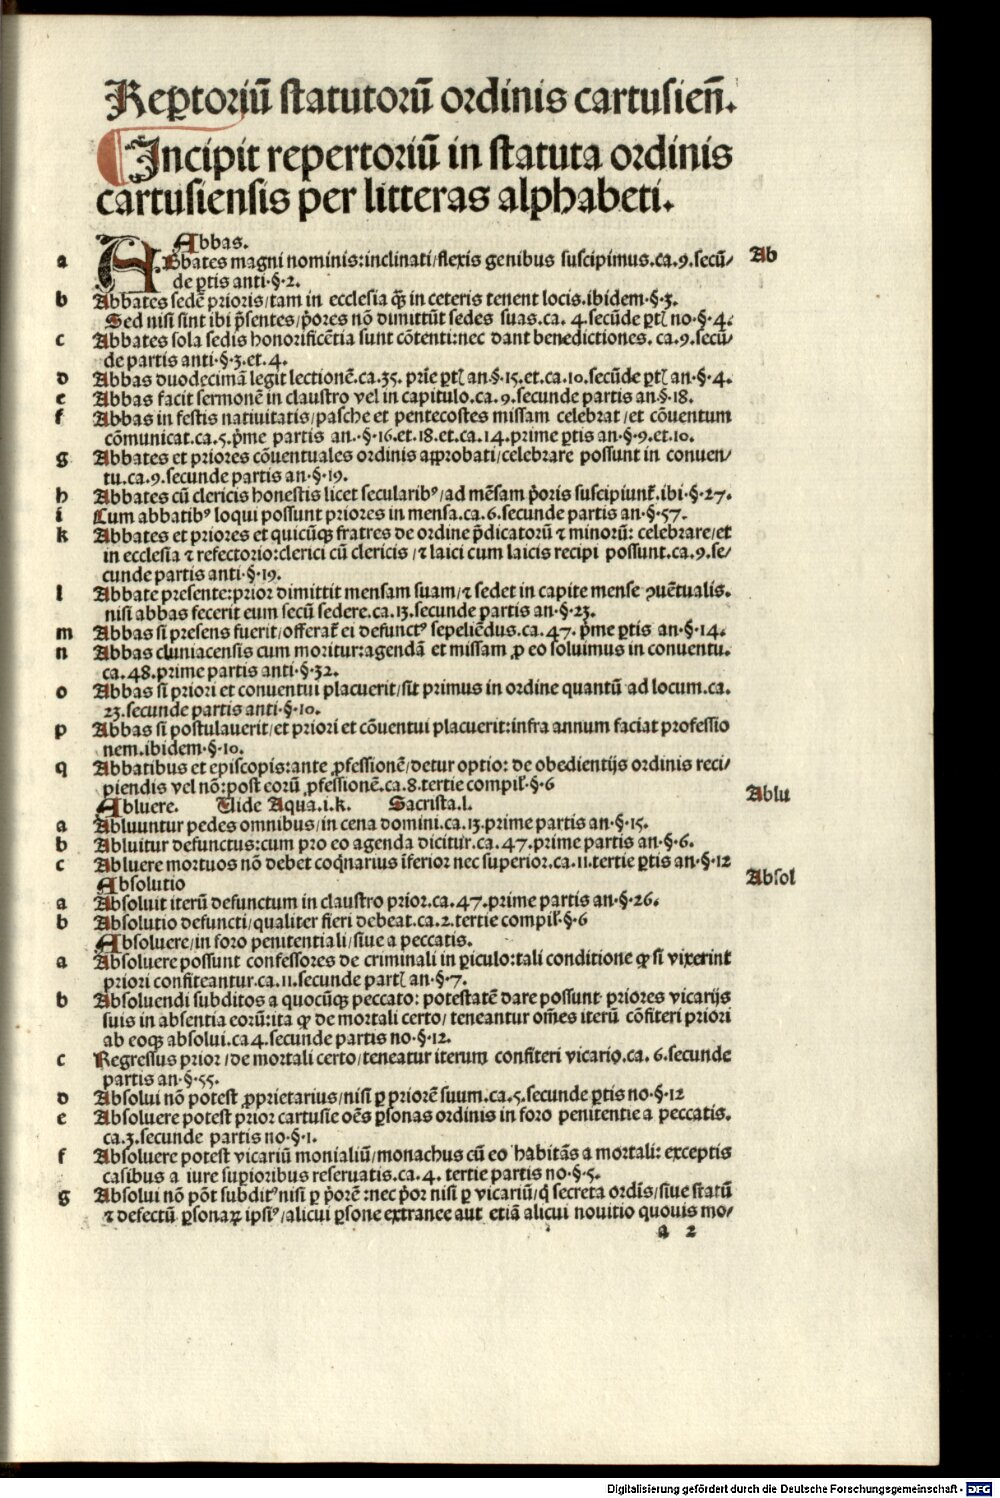 Rep̱toriū statutorū ordinis cartusien̄.
Incipit repertoriū in statuta ordinis
cartusiensis per litteras alphabeti.
Abbas.
a Abbates magni nominis:inclinati/flexis genibus suscipimus.ca.9.secū/ Ab
de p̱tis anti·§·2.
b Abbates sedē prioris/tam in ecclesia q̄ꝫ in ceteris tenent locis.ibidem·§·3.
Sed nisi sint ibi p̄sentes/p̄ores nō dimittūt sedes suas.ca. 4.secūde p̱tꝭ no·§·4.
c Abbates sola sedis honorificētia sunt cōtenti:nec dant benedictiones. ca.9.secū/
de partis anti·§·3.et.4.
d Abbas duodecimā legit lectionē.ca.35. prīe p̱tꝭ an.§·15.et.ca.10.secūde p̱tꝭ an·§·4.
e Abbas facit sermonē in claustro vel in capitulo.ca.9.secunde partis an.§·18.
f Abbas in festis natiuitatis/pasche et pentecostes missam celebrat/et cōuentum
cōmunicat.ca.5.p̄me partis an.·§·16.et.18.et.ca.14.prime p̱tis an·§·9.et.10.
g Abbates et priores cōuentuales ordinis approbati/celebrare possunt in conuen/
tu.ca.9.secunde partis an·§·19.
h Abbates cū clericis honestis licet secularibꝰ/ad mēsam p̄oris suscipiunt᷑.ibi·§·27.
i Cum abbatibꝰ loqui possunt priores in mensa.ca.6.secunde partis an·§·57.
k Abbates et priores et quicūqꝫ fratres de ordine p̄dicatorū ⁊ minorū: celebrare/et
in ecclesia ⁊ refectorio:clerici cū clericis /⁊ laici cum laicis recipi possunt.ca.9.se/
cunde partis anti·§·19.
l Abbate presente:prior dimittit mensam suam/⁊ sedet in capite mense ꝯuētualis.
nisi abbas fecerit eum secū sedere.ca.13.secunde partis an·§·23.
m Abbas si presens fuerit/offerat᷑ ei defunctꝰ sepeliēdus.ca.47. p̄me p̱tis an·§·14.
n Abbas cluniacensis cum moritur:agendā et missam ꝓ eo soluimus in conuentu.
ca.48.prime partis anti·§·32.
o Abbas si priori et conuentui placuerit/sit primus in ordine quantū ad locum.ca.
23.secunde partis anti·§·10.
p Abbas si postulauerit/et priori et cōuentui placuerit:infra annum faciat professio
nem.ibidem·§·10.
q Abbatibus et episcopis:ante ꝓfessionē/detur optio: de obedientijs ordinis reci/
piendis vel nō:post eorū ꝓfessionē.ca.8.tertie compil̄·§·6
Abluere. Vide Aqua.i.k. Sacrista.l. Ablu
a Abluuntur pedes omnibus/in cena domini.ca.13.prime partis an·§·15.
b Abluitur defunctus:cum pro eo agenda dicitur.ca.47.prime partis an·§·6.
c Abluere mortuos nō debet coq̄narius īferior nec superior.ca.11.tertie p̱tis an·§·12
Absolutio Absol
a Absoluit iterū defunctum in claustro prior.ca.47.prime partis an·§·26.
b Absolutio defuncti/qualiter fieri debeat.ca.2.tertie compil̄·§·6
Absoluere/in foro penitentiali/siue a peccatis.
a Absoluere possunt confessores de criminali in p̱iculo:tali conditione ꝙ si vixerint
priori confiteantur.ca.11.secunde partꝭ an·§·7.
b Absoluendi subditos a quocūqꝫ peccato: potestatē dare possunt priores vicarijs
suis in absentia eorū:ita ꝙ de mortali certo/ teneantur om̄es iterū cōfiteri priori
ab eoqꝫ absolui.ca 4.secunde partis no·§·12.
c Regressus prior/de mortali certo/teneatur iterum confiteri vicario.ca. 6.secunde
partis an·§·55.
d Absolui nō potest ꝓprietarius/nisi p̱ priorē suum.ca.5.secunde p̱tis no·§·12
e Absoluere potest prior cartusie oēs p̱sonas ordinis in foro penitentie a peccatis.
ca.3.secunde partis no·§·1.
f Absoluere potest vicariū monialiū/monachus cū eo habitās a mortali: exceptis
casibus a iure sup̱ioribus reseruatis.ca.4. tertie partis no·§·5.
g Absolui nō pōt subditꝰ nisi p̱ p̄orē:nec p̄or nisi p̱ vicariū/q̇ secreta ordīs/siue statū
⁊ defectū p̱sonaꝝ ipsiꝰ/alicui p̱sone extranee aut etiā alicui nouitio quouis mo/
a 2
Digitalisierung gefördert durch die Deutsche Forschungsgemeinschaft - DFG